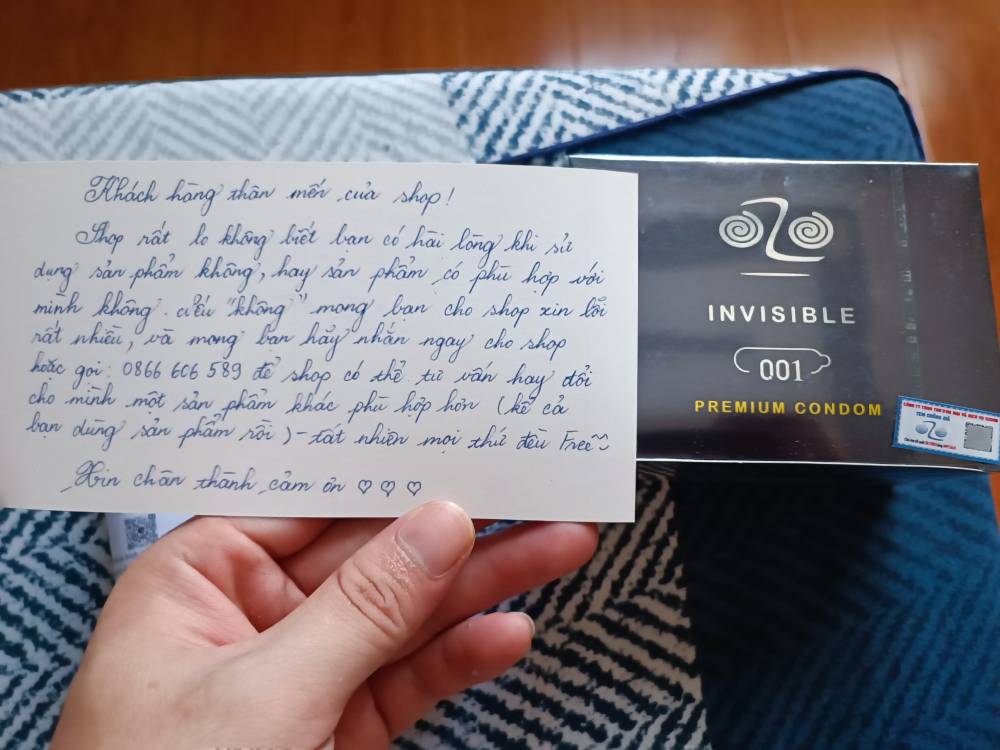 Khách hàng thân mến của shop!
Shop rất lo không biết bạn có hài lòng khi sử
dụng sản phẩm không, hay sản phẩm có phù hợp với
mình không. Nếu "không" mong bạn cho shop xin lỗi
rất nhiều, và mong bạn hãy nhắn ngay cho shop
hoặc gọi: 0866 606 589 để shop có thể tư vấn hay đổi
cho mình một sản phẩm khác phù hợp hơn (kể cả
bạn dùng sản phẩm rồi) - tất nhiên mọi thứ đều Free~~
Xin chân thành cảm ơn ♡♡♡
OZO
INVISIBLE
001
PREMIUM CONDOM
TEM CHỐNG GIẢ